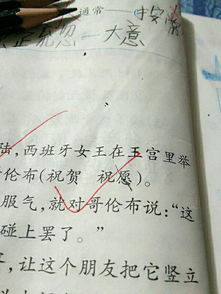 通常——按常
正统思——大意
陆，西班牙女王在王宫里举
哥伦布(祝贺 祝愿)。
服气，就对哥伦布说：“这
碰上罢了。”
，让这个朋友把它竖立